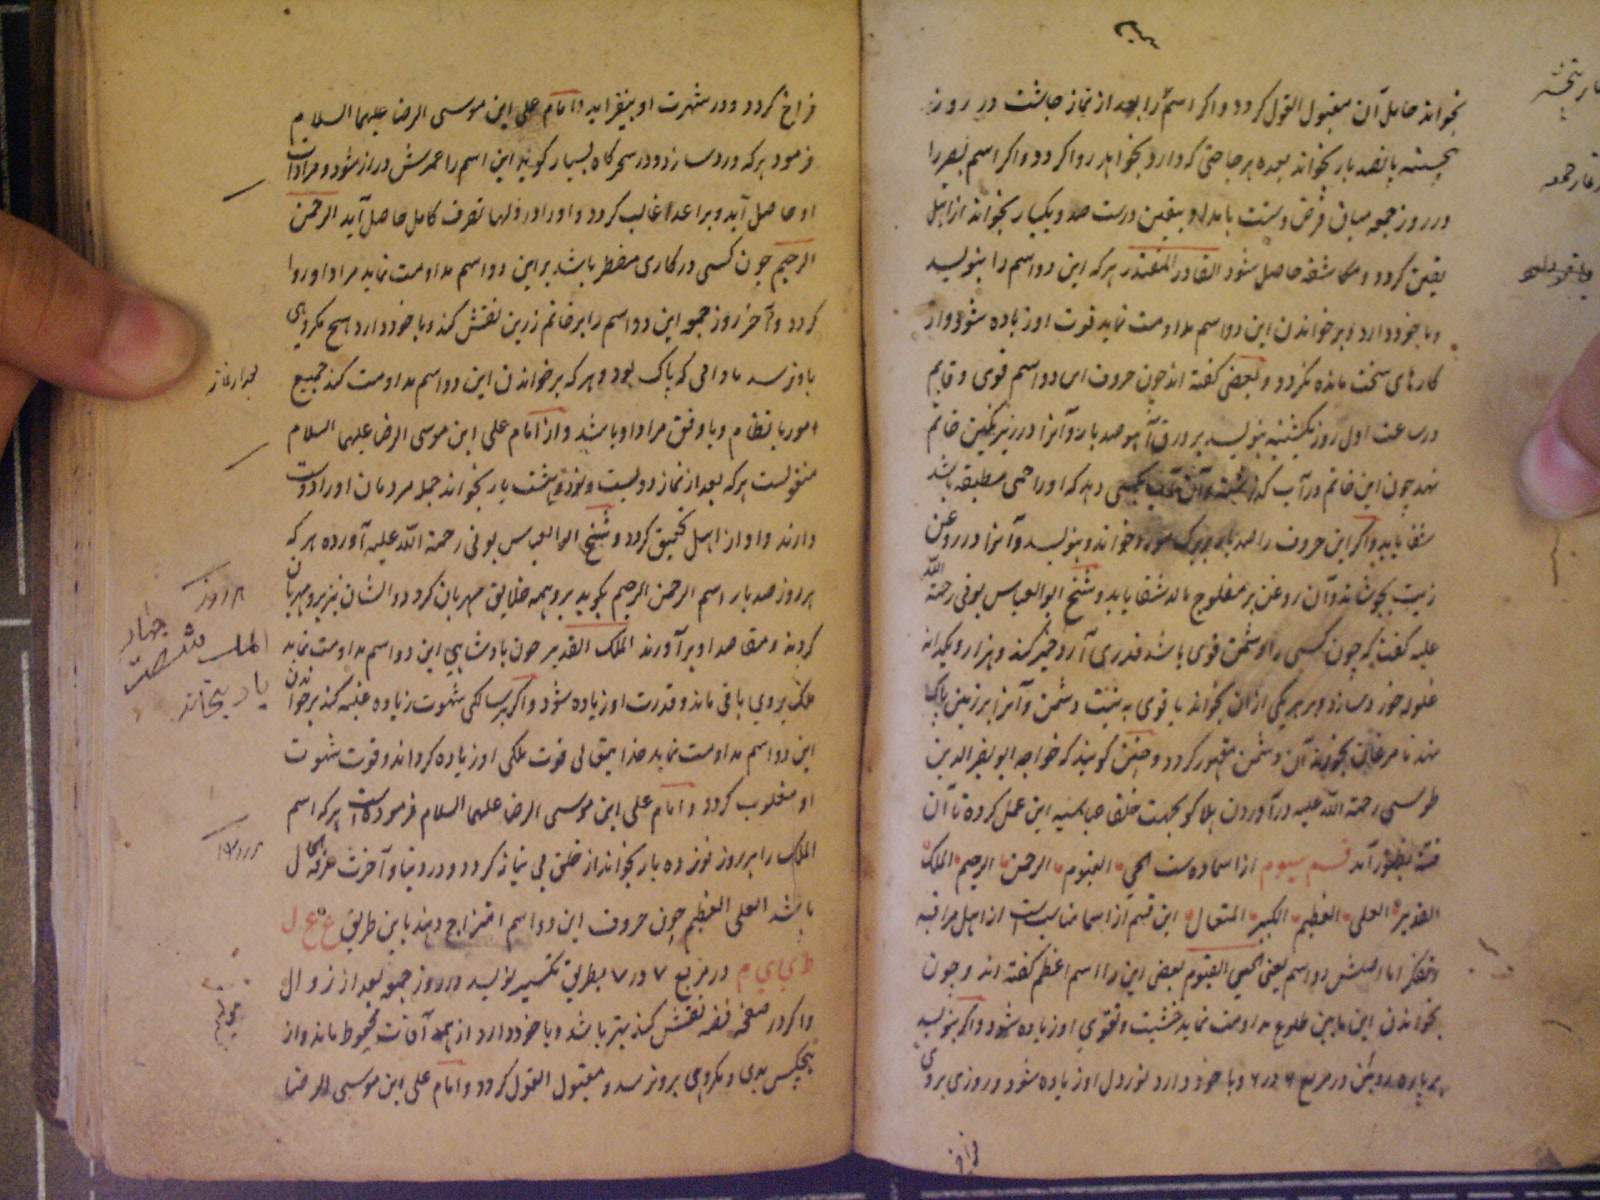 بخواند حامل آن مقبول القول کردد واکر اسم را بعد از نماز چاشت در روز
پنجشنبه پانصد بار بخواند بعده هر حاجتی که دارد بخواهد روا کردد واکر اسم بصیر را
در روز جمعه میان فرض وسنت بامداد ویقین درست صد ویکبار بخواند از اهل
یقین کردد ومکاشفه حاصل شود القادر المقتدر هرکه این دو اسم را بنویسد
وبا خود دارد وبر خواندن این دو اسم مداومت نماید قوت او زیاده شود واز
کارهای سخت مانده نکردد وبعضی کفته اند چون حروف این دو اسم قوی وقایم
در ساعت اول روز یکشنبه بنویسد بر ورق آهو صد بار وآنرا در زیر نکین خاتم
نهد چون این خاتم در آب که دهد که اورا حمی مطبقه باشد
شفا یابد واکر این حروف را صد بار بر برک خواند وبنویسد وآنرا در روغن
زیت بجوشاند وآن روغن بر مفلوج مالد شفا یابد وشیخ ابو العباس بونی رحمة الله
علیه کفت که چون کسی را دشمن قوی باشد قدری آرد خمیر کند وهزار ویکدانه
غلوله خورد سازد وبر هر یکی ازان بخواند یا قوی به نیت دشمن وآنرا بر زمین پاک
نهد تا مرغان بخورند آن دشمن مقهور کردد وچنین کویند که خواجه ابو نصر الدین
طوسی رحمة الله علیه در آوردن هلاکو بجهت خلفا عباسیه این عمل کرده تا آن
فتنه بظهور آمد قسم سیوم از اسما ده ست الحی القیوم الرحمن الرحیم الملک
القدیر العلی العظیم الکبیر المتعال این قسم از اسما مناسبست از اهل مراقبه
وتفکر اما اصلش دو اسم یعنی الحی القیوم بعض این را اسم اعظم کفته اند وچون
بخواندن این مابین طلوع مداومت نماید خشیت وتقوی او زیاده شود واکر بنویسد
بر پاره در مربع ۶ در ۶ وبا خود دارد نور دل او زیاده شود وروزی بروی
فراخ
فراخ کردد ودر شهرت او بیفزاید وامام علی ابن موسی الرضا علیهما السلام
فرمود هرکه ورد سازد ودر سحرکاه بسیار کوید این اسم را عمرش دراز شود ومرادات
او حاصل آید وبر اعدا غالب کردد واورا در دلها تصرف کامل حاصل آید الرحمن
الرحیم چون کسی در کاری مضطر باشد بر این دو اسم مداومت نماید مراد او روا
کردد وآخر روز جمعه این دو اسم را بر خاتم زرین نقش کند وبا خود دارد هیچ مکروهی
باو نرسد مادامی که پاک بود وهرکه بر خواندن این دو اسم مداومت کند جمیع
امور با نظام وبا وفق مراد او باشد واز امام علی ابن موسی الرضا علیهما السلام
منقولست هرکه بعد از نماز دویست ونود وهشت بار بخواند جمله مردمان اورا دوست
دارند واو از اهل تحقیق کردد وشیخ ابو العباس بونی رحمة الله علیه آورده هرکه
هر روز صد بار اسم الرحمن الرحیم بکوید بر وهمه خلایق مهربان کردد وایشان نیز برو مهربان
کردند ومقاصد او بر آورند الملک القدیر چون پادشاهی این دو اسم مداومت نماید
ملک بروی باقی ماند وقدرت او زیاده شود واکر بر سالکی شهوت زیاده غلبه کند بر خواندن
این دو اسم مداومت نماید خدایتعالی قوت ملکی او زیاده کرداند وقوت شهوت
او مغلوب کردد وامام علی ابن موسی الرضا علیهما السلام فرموده است هرکه اسم
الملک را هر روز نوزده بار بخواند از خلق بی نیاز کردد ودر دنیا وآخرت
باشد العلی العظیم چون حروف این دو اسم امتزاج دهد باین طریق ع ع ل
ظ ی ی م در مربع ۷ در ۷ بطریق تکسیر نویسد در روز جمعه بعد از زوال
واکر در صفحه فضه نقش کند بهتر باشد وبا خود دارد از همه آفات محفوظ ماند واز
هیچکس بدی ومکروهی برو نرسد ومقبول القول کردد وامام علی ابن موسی الرضا
هر روز
چهار
شصت
بار بخواند